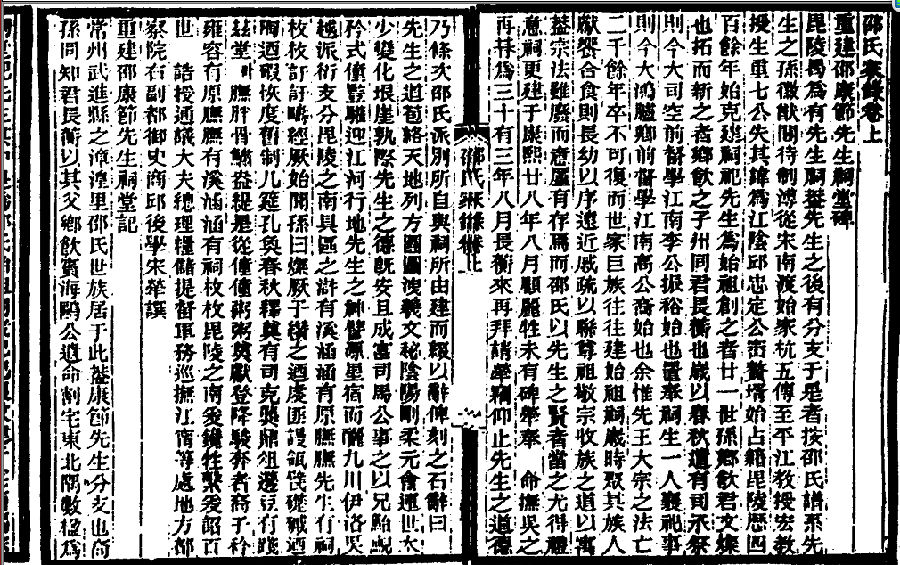 邵氏家錄卷上
重建邵康節先生祠堂碑
毘陵曷為有先生祠葢先生之後有分支于是者按邵氏譜系先
生之孫徽猷閣待制溥從宋南渡始家杭五傳至平江教授宏教
授生重七公失其諱為江陰邱忠定公崈贅壻始占籍毘陵歷四
百餘年始克建祠祀先生為始祖創之者廿一世孫鄉飲君文燦
也拓而新之者鄉飲之子州同君長衡也歲以春秋遣有司承祭
則今大司空前督學江南李公振裕始也置奉祠生一人襄祀事
則今大鴻臚卿前督學江南高公裔始也余惟先王大宗之法亡
二千餘年卒不可復而世家巨族往往建始祖祠歲時聚其族人
獻饗合食則長幼以序遠近戚疏以聯尊祖敬宗收族之道以寓
葢宗法雖廢而意猶有存焉而邵氏以先生之賢者當之尤得禮
意祠更建于康熙廿八年八月顧麗牲未有碑犖奉 命撫吳之
再 為三十有三年八月長衡來再拜請犖竊仰止先生之道德
乃條次邵氏派別所自與祠所由建而輟以辭俾刻之石辭曰
先生之道苞絡天地列方圖圓 羲文祕陰陽剛柔元會運世大
少變化根崖孰際先生之德旣安且成富司馬公事之以兄貽
矜式僮 驩迎江河行地先生之神譬源星宿而釃九川伊洛吳
越派衍支分毘陵之南具區之滸有溪涵涵有原膴膴先生有祠
枚枚訂訂疇經厥始聞孫曰燦厥子纘之迺度 謾瓴甓 迺
陶迺 恢度舊制几筵孔奐春秋釋奠有司克 鼎俎籩豆有踐
茲堂 膴胖骨鱐盎緹是從僮僮粥粥奠獻登降駿奔者裔子衿
雍容有原膴膴有溪涵涵有祠枚枚毘陵之南爰鑱牲 爰 百
世 誥授通議大夫總理糧儲提督軍務巡撫江甯等處地方都
察院右副都御史商邱後學宋犖譔
重建邵康節先生祠堂記
常州武進縣之漳湟里邵氏世族居于此葢康節先生分支也裔
孫同知君長衡以其父鄉飲賓海鷗公遺命割宅東北隅數楹為
邵氏家錄卷上